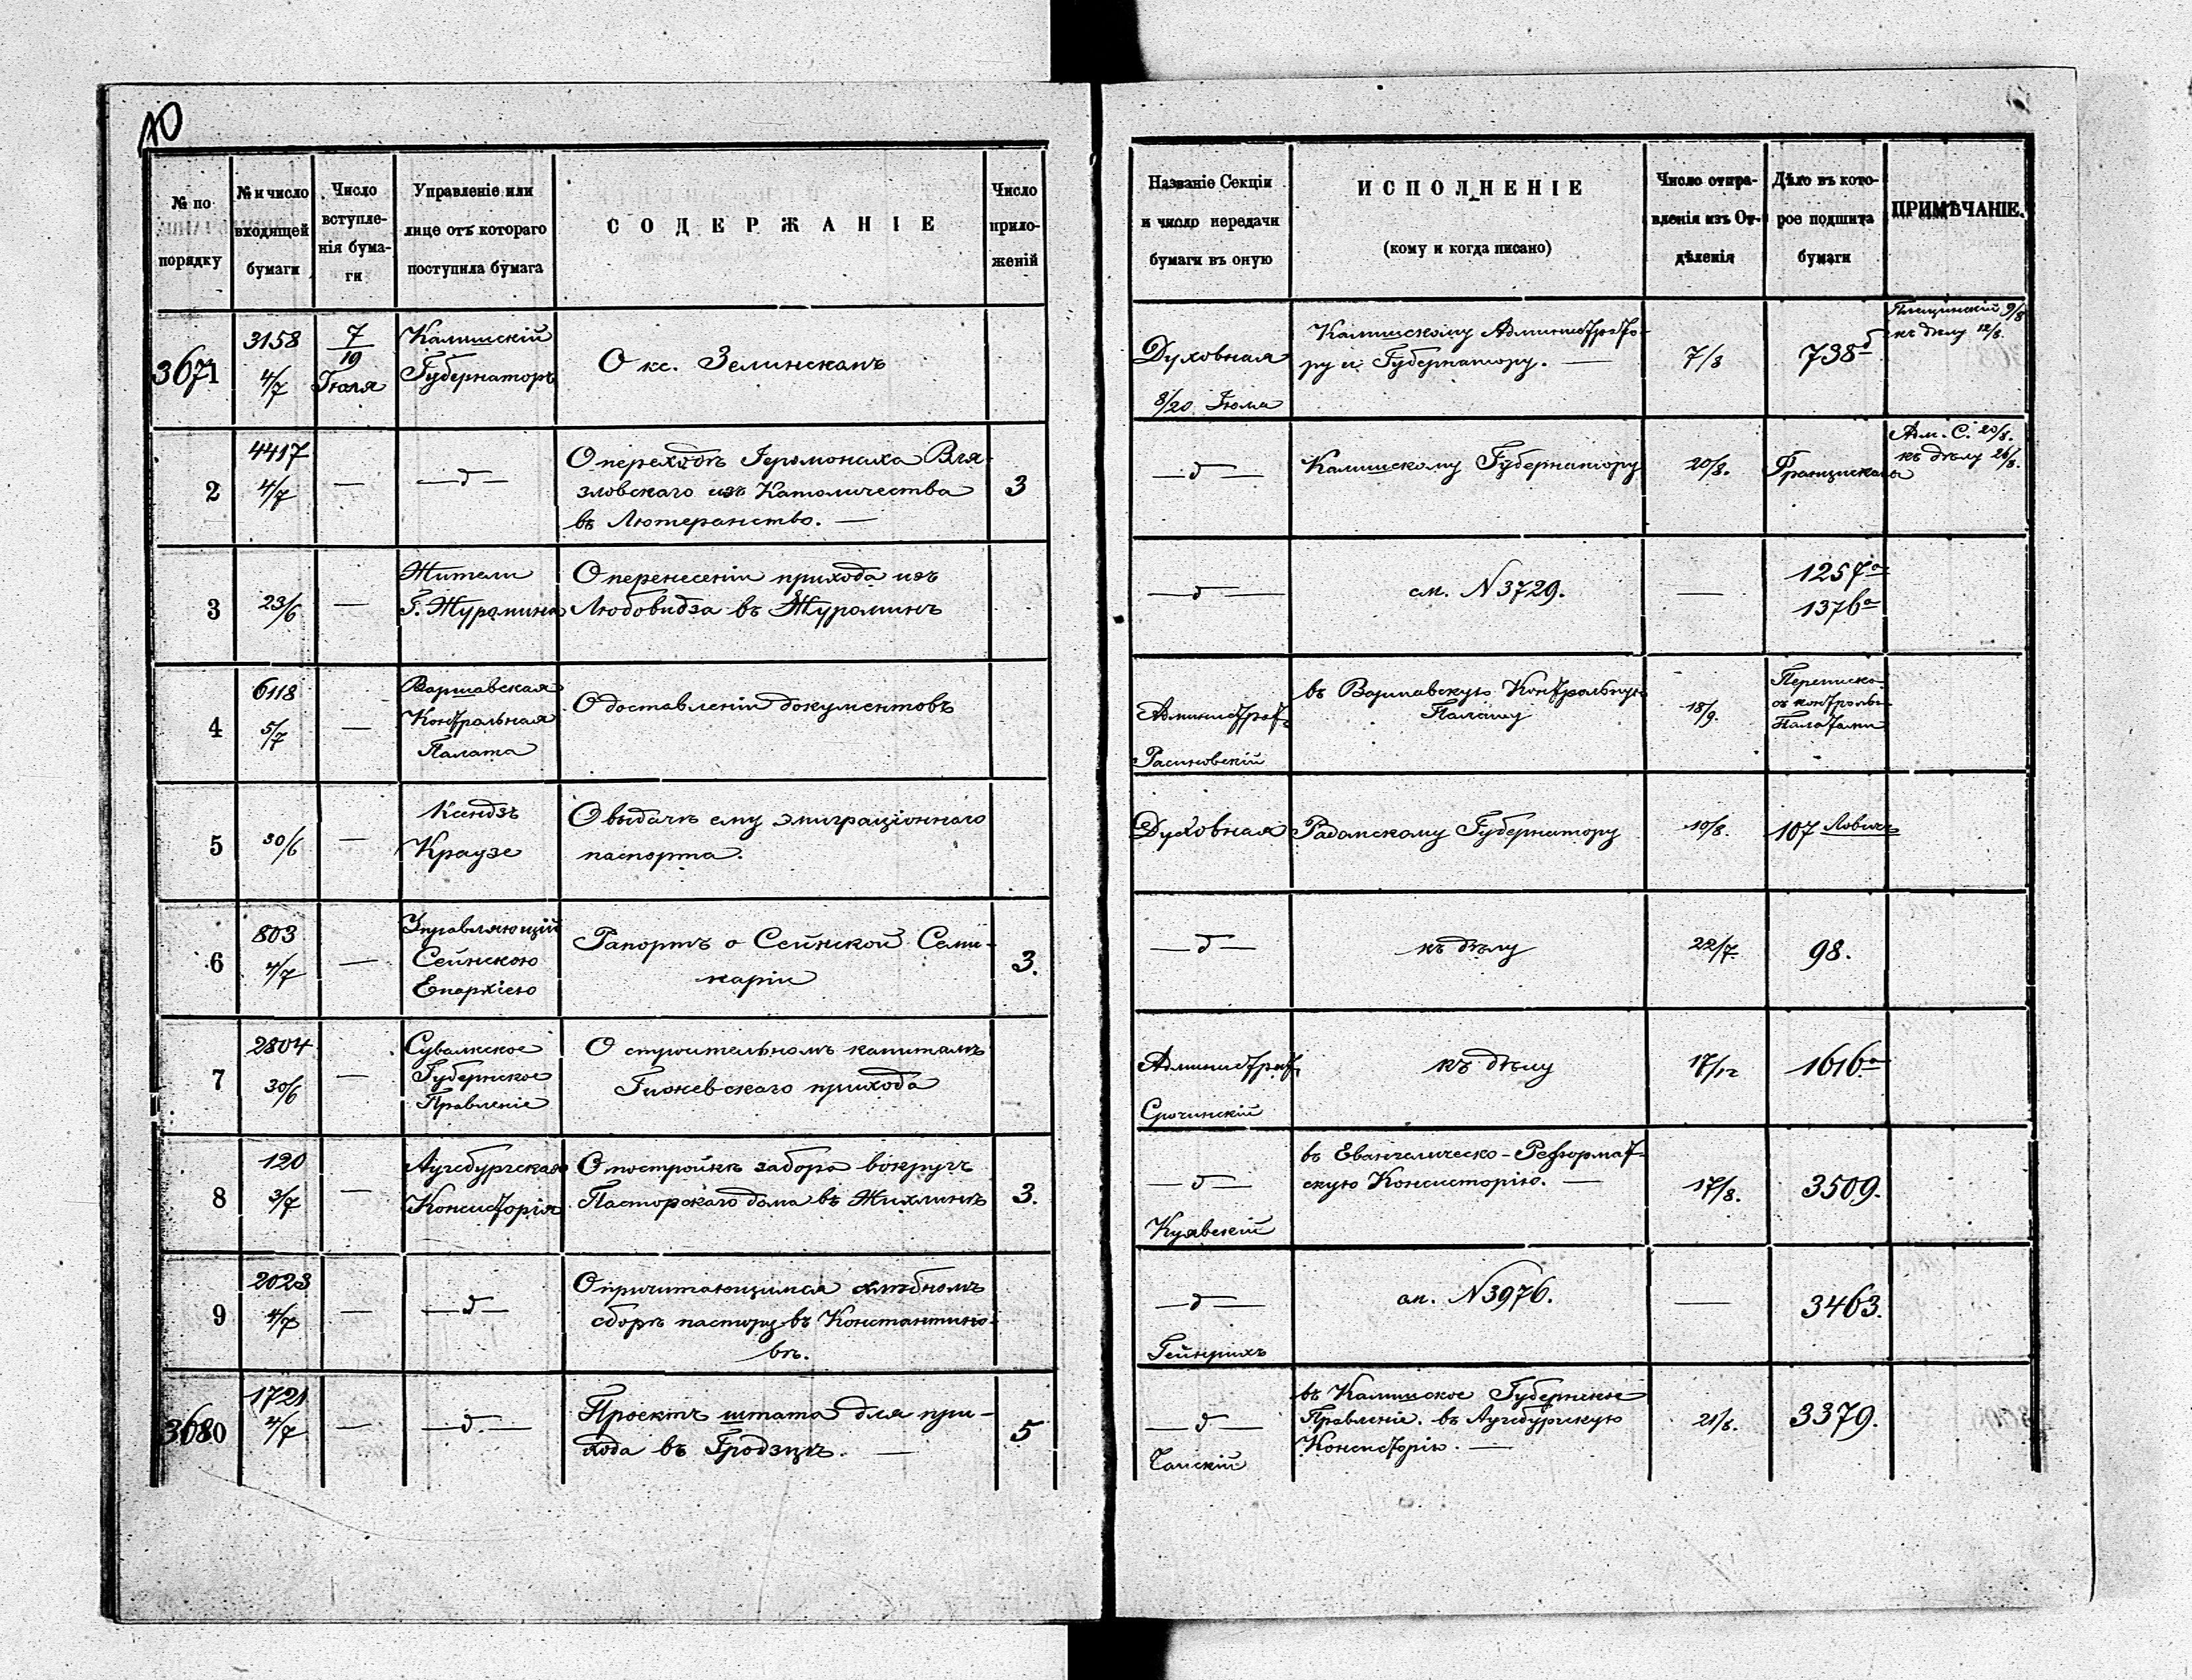 10
№ по порядку
№ и число входящей бумаги
Число вступле-
нія бума-
ги
Управленіе или
лице отъ котораго
поступила бумага
СОДЕРЖАНІЕ
Число
прило-
женій
Названіе Секціи
и число передачи
бумаги въ оную
ИСПОЛНЕНІЕ
(кому и когда писано)
Число отпра-
вленія изъ От-
дѣленія
Дѣло въ кото-
рое подшита
бумаги
ПРИМѢЧАНІЕ.
3671
3158
4/7
7/19
Іюля
Калишскій
Губернаторъ
О кс. Зелинскомъ
Духовная
8/20 Іюля
Калишскому Администрато-
ру и Губернатору. —
7/8
738б
9/8
къ дѣлу 12/8.
2
4417
4/7
—
—д—
О переходѣ Іеромонаха Вля-
зловскаго изъ Католичества
въ Лютеранство. —
3
—д—
Калишскому Губернатору
20/8.
Францискане
Адм. С. 20/8.
къ дѣлу 26/8.
3
23/6
—
Жители
Г. Журомина
О перенесеніи прихода изъ
Любовидза въ Журоминъ
—д—
см. N 3729.
—
1257а
1376а
4
6118
5/7
—
Варшавская
Контрольная
Палата
О доставленіи документовъ
Администрат.
Въ Варшавскую Контрольную
Палату
18/9.
Переписка
съ контрольн.
Палатами
5
30/6
—
Ксендзъ
Краузе
О выдачѣ ему эмиграціоннаго
паспорта.
Духовная
Радомскому Губернатору
10/8.
107 Ловичъ
6
803
4/7
—
Управляющій
Сейнскою
Епархіею
Рапортъ о Сейнской Семи-
наріи
3.
—д—
къ дѣлу
22/7.
98.
7
2804
30/6
—
Сувалкское
Губернское
Правленіе
О строительномъ капиталѣ
прихода
Администрат.
Срочинскій
къ дѣлу
17/12
1616а
8
120
3/7
—
Аугсбургская
Консисторія
О постройкѣ забора вокругъ
Пасторскаго дома въ Жихлинѣ
3.
—д—
Куявскій
въ Евангелическо-Реформат-
скую Консисторію. —
17/8.
3509.
9
2023
4/7
—
—д—
О причитающимся хлѣбномъ
сборѣ пастору въ Константино-
вѣ.
—д—
Гейнрихъ
см. N 3976.
—
3463.
3680
1721
4/7
—
—д.—
Проектъ штата для при-
хода въ Гродзцѣ. —
5
—д—
въ Калишское Губернское
Правленіе. въ Аугсбургскую
Консисторію. —
21/8.
3379.